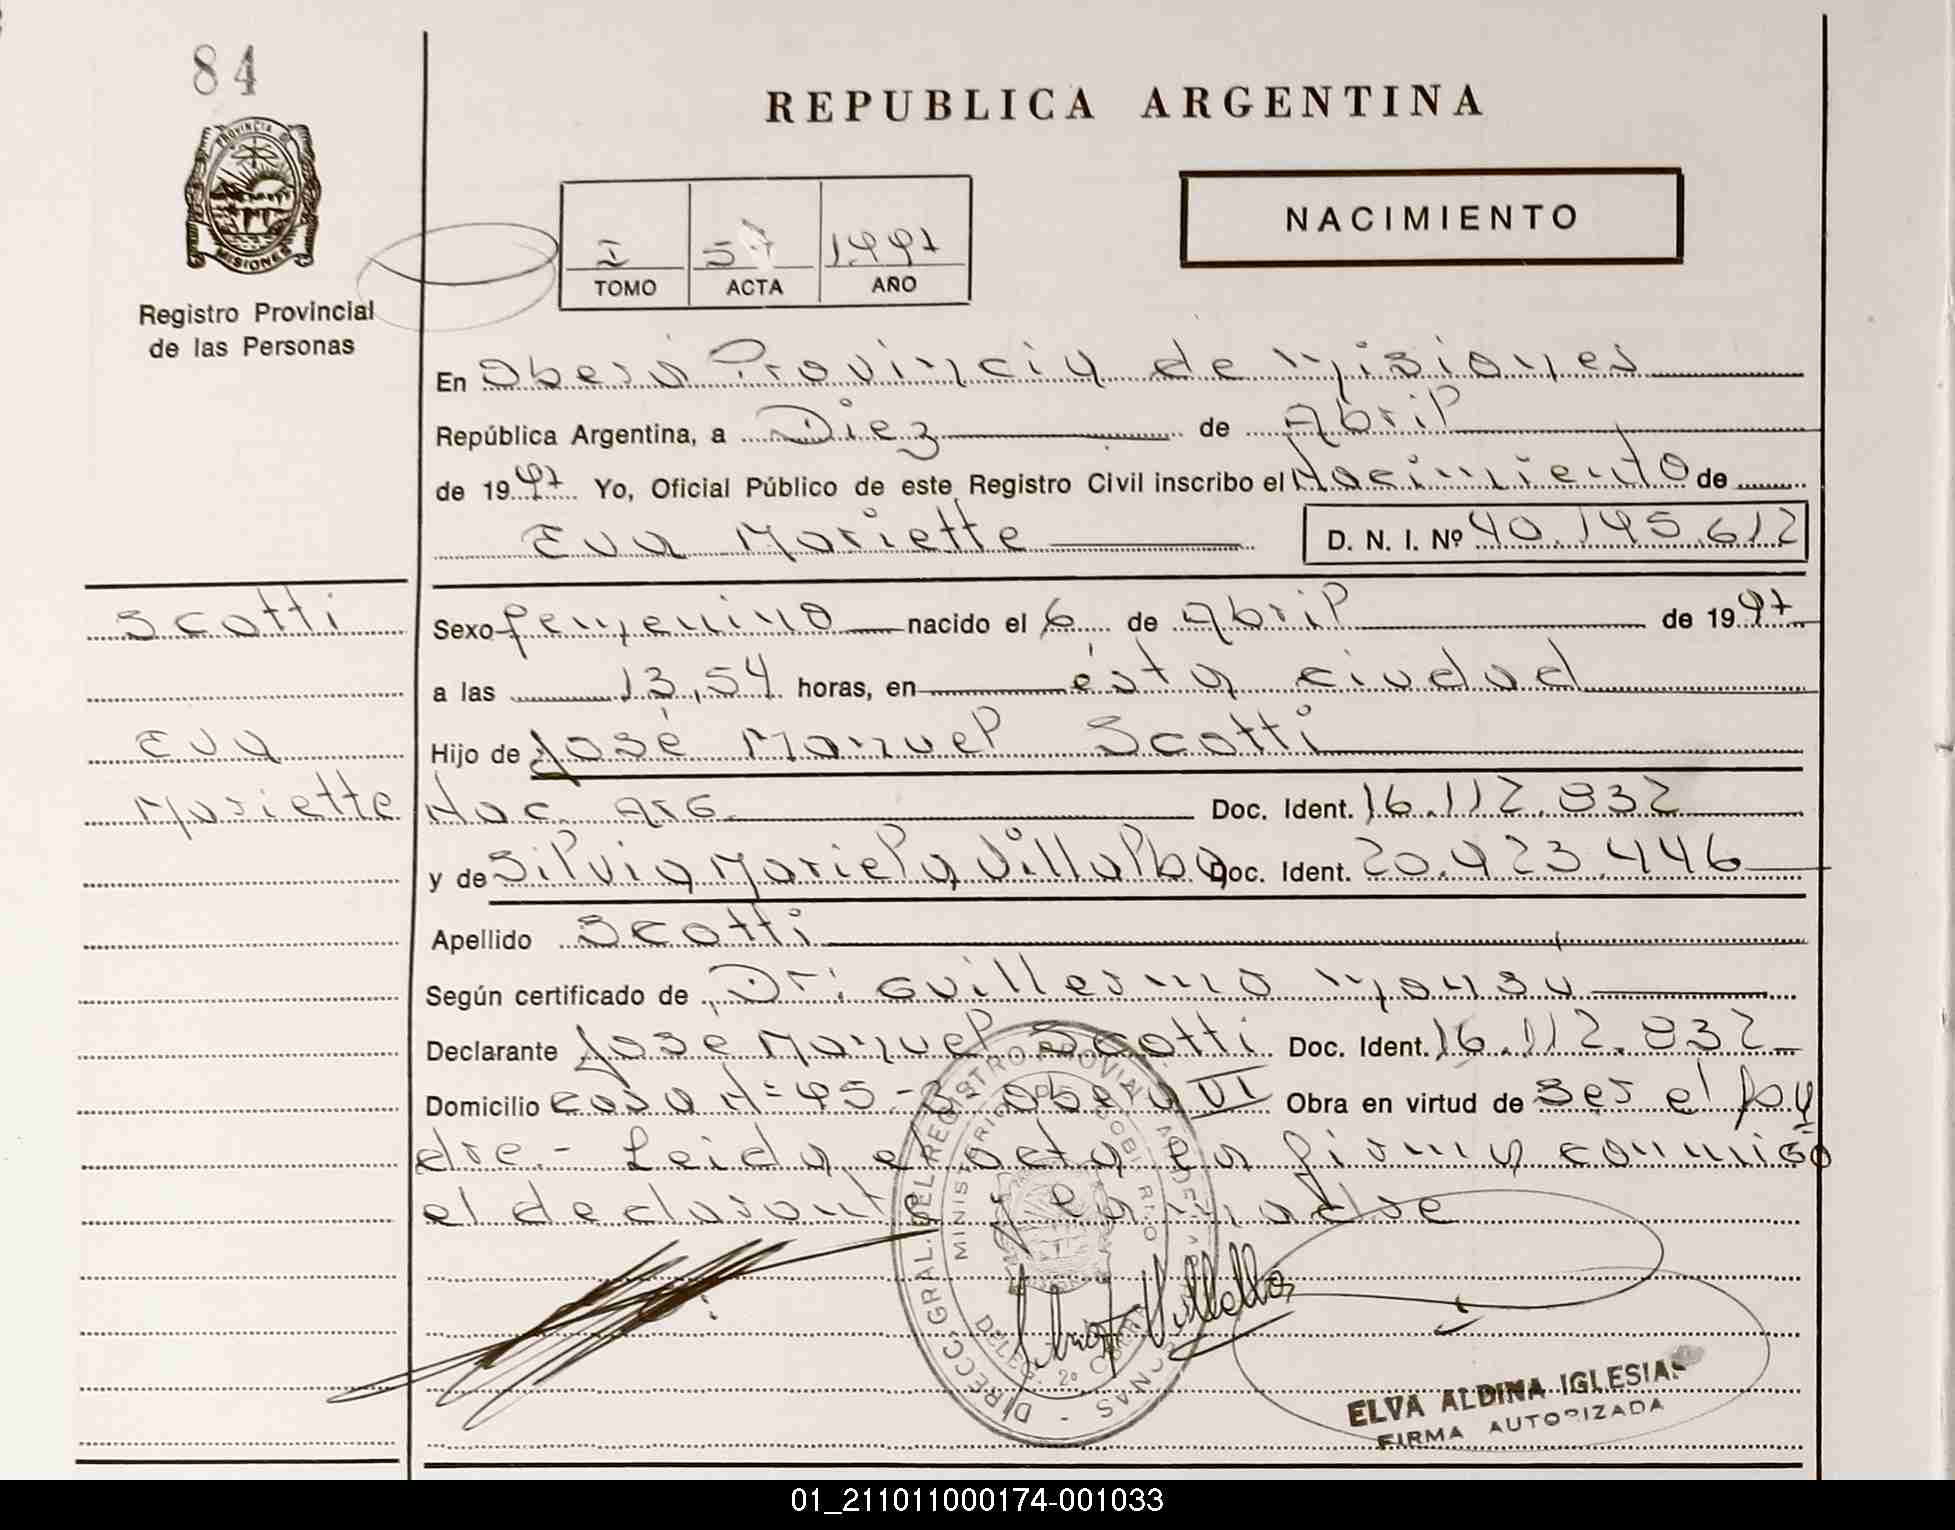 84
REPUBLICA ARGENTINA
PROVINCIA DE
MISIONES
Registro Provincial
de las Personas
I 57 1.997
TOMO ACTA AÑO
NACIMIENTO
En Oberá Provincia de Misiones
República Argentina, a Diez de Abril
de 1997 Yo, Oficial Público de este Registro Civil inscribo el Nacimiento de
Eva Mariette D. N. I. Nº 40.145.612
Scotti
Sexo femenino nacido el 6 de Abril de 1997
a las 13,54 horas, en ésta ciudad
Eva
Hijo de José Manuel Scotti
Mariette
Nac. Arg Doc. Ident. 16.112.832
y de Silvia Mariela Villalba Doc. Ident. 20.423.446
Apellido Scotti
Según certificado de Dr: Guillermo
Declarante José Manuel Scotti Doc. Ident. 16.112.832
Domicilio casa N=45-B- Oberá VI Obra en virtud de ser el pa
dre.- Leida el acta la firma conmigo
el declarante y la madre
DIRECC. GRAL. DEL REGISTRO PROVIAL DE PERSONAS
MINISTERIO DE GOBIERNO
DELEG. 2º
ELVA ALDINA IGLESIAS
FIRMA AUTORIZADA
01_211011000174-001033